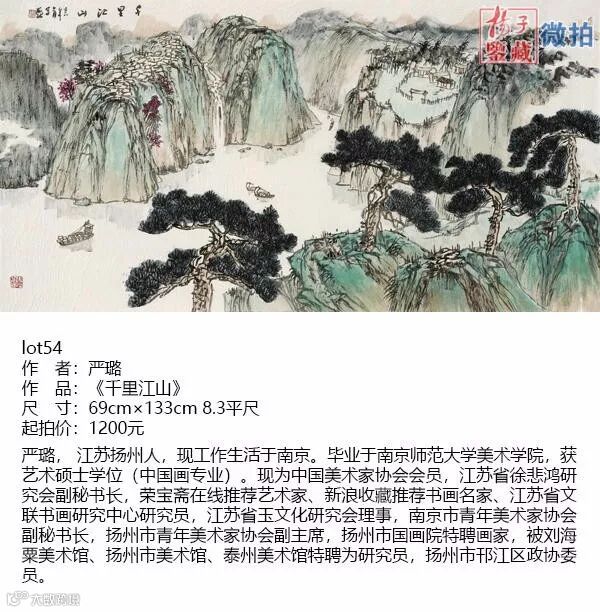 千里江山
杨子
鉴藏
微拍
lot54
作 者：严璐
作 品：《千里江山》
尺 寸：69cm×133cm 8.3平尺
起拍价：1200元
严璐， 江苏扬州人，现工作生活于南京。毕业于南京师范大学美术学院，获
艺术硕士学位（中国画专业）。现为中国美术家协会会员，江苏省徐悲鸿研
究会副秘书长，荣宝斋在线推荐艺术家、新浪收藏推荐书画名家、江苏省文
联书画研究中心研究员，江苏省玉文化研究会理事，南京市青年美术家协会
副秘书长，扬州市青年美术家协会副主席，扬州市国画院特聘画家，被刘海
粟美术馆、扬州市美术馆、泰州美术馆特聘为研究员，扬州市邗江区政协委
员。
大数跨境